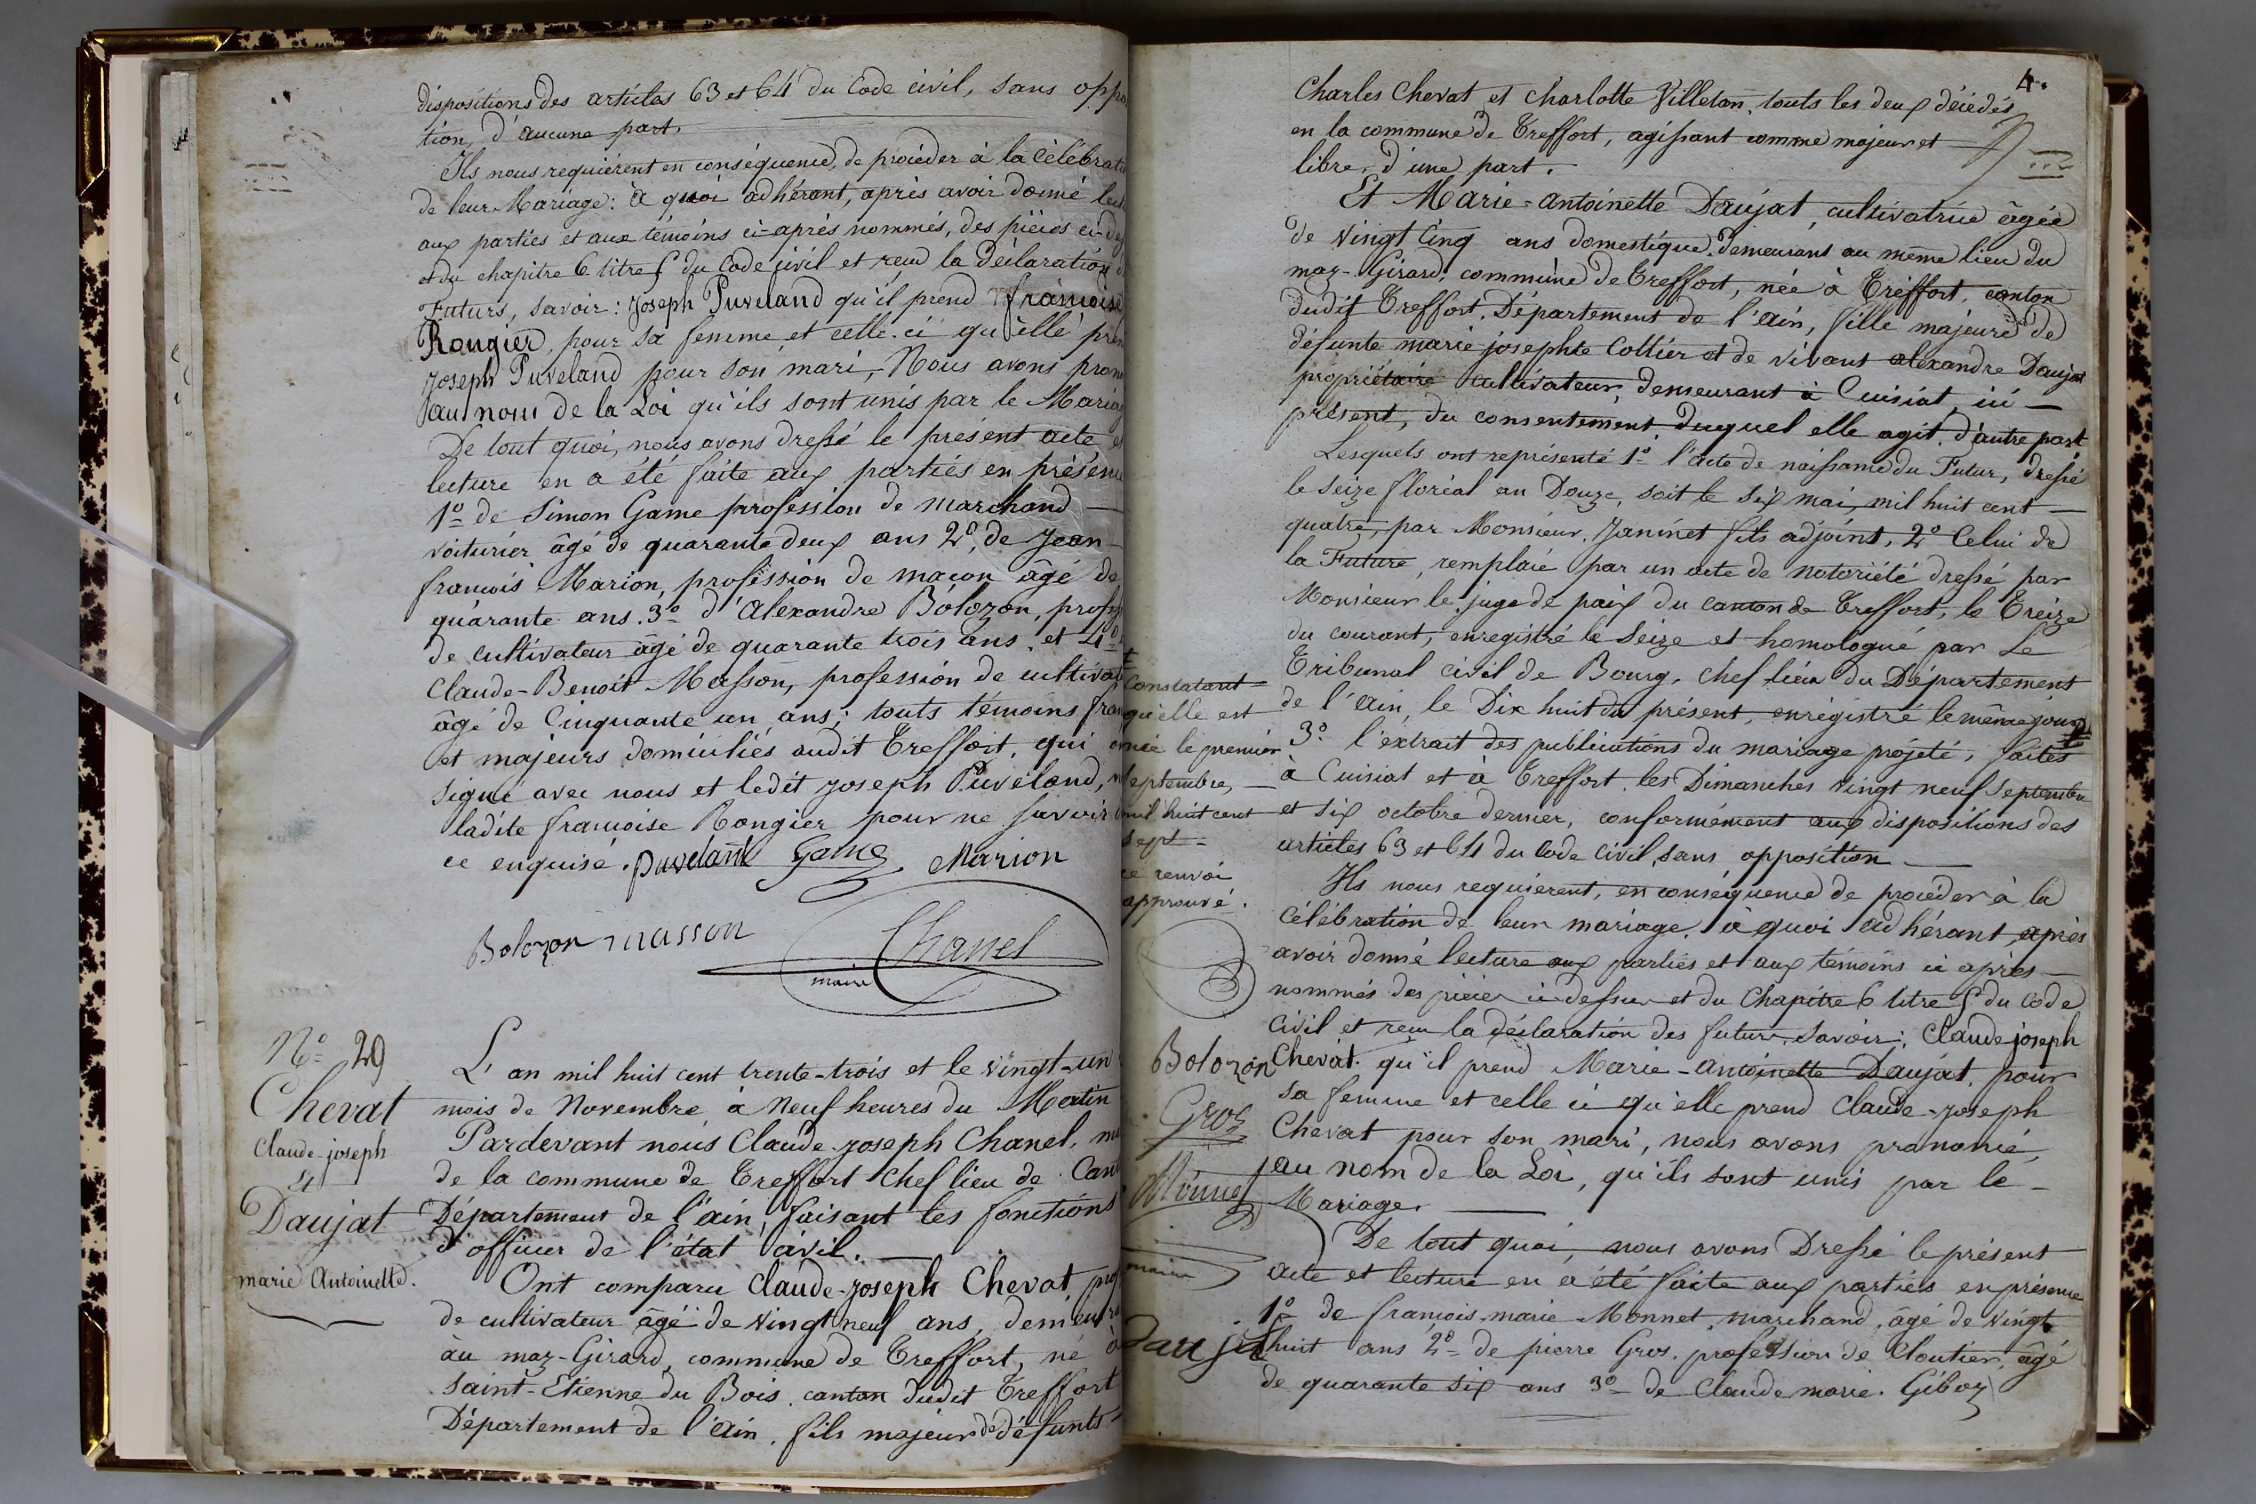 dispositions des articles 63 et 64 du Code civil, sans oppo
tion, d'aucune part.
Ils nous requièrent en conséquence, de procéder à la célébrati
de leur Mariage: à quoi adhérant, après avoir donné lect
aux parties et aux témoins ci-après nommés, des pièces ci-des
et du chapitre 6 titre 5 du Code civil et recu la déclaration d
Futurs, savoir: Joseph Puveland qu'il prend francoise
Rongier, pour sa femme et celle-ci qu'elle pren
Joseph Puveland pour son mari, Nous avons prono
au nom de la Loi qu'ils sont unis par le Mariag
De tout quoi, nous avons dressé le présent acte et
lecture en a été faite aux parties en présence
1º de Simon Game profession de marchand —
voiturier âgé de quarante deux ans 2º de Jean —
francois Marion, profession de macon âgé de
quarante ans. 3º d'Alexandre Bolozon, profess
de cultivateur âgé de quarante trois ans, et 4º
Claude-Benoit Masson, profession de cultivat
âgé de Cinquante un ans; touts témoins fran
et majeurs domiciliés audit Treffort, qui
signé avec nous et ledit Joseph Puveland,
ladite francoise Rongier pour ne savoir
ce enquisé. Puveland Game Marion
Bolozon masson Chanel
maire
Nº 29
Chevat
Claude-joseph
et
Daujat
marie Antoinette.
L'an mil huit cent trente-trois et le vingt-un
mois de Novembre à Neuf heures du Matin
Pardevant nous Claude-Joseph Chanel, ma
de la commune de Treffort chef lieu de Cant
Département de l'ain, faisant les fonctions
d'officier de l'état civil. —
Ont comparu Claude-Joseph Chevat, prof
de cultivateur âgé de vingt neuf ans, demeura
au maz-Girard, commune de Treffort, né à
Saint-Etienne du Bois, canton dudit Treffort
Département de l'ain, fils majeur de défunts =
4.
Charles Chevat et Charlotte Villetan, touts les deux décédés
en la commune de Treffort, agissant comme majeur et —
libre, d'une part.
Et Marie-antoinette Daujat, cultivatrice âgée
de vingt cinq ans domestique demeurant au même lieu du
maz-Girard, commune de Treffort, née à Treffort, canton
dudit Treffort, Département de l'ain, fille majeure de
défunte marie josephte Collier et de vivant alexandre Daujat
propriétaire cultivateur, demeurant à Cuisiat, ici —
présent, du consentement duquel elle agit, d'autre part
Lesquels ont représenté 1º l'acte de naissance du Futur, dressé
le seize floréal an Douze, soit le six mai, mil huit cent —
quatre, par Monsieur Janinet fils adjoint, 2º Celui de
la Future, remplacé par un acte de notoriété dressé par
Monsieur le juge de paix du canton de Treffort, le Treize
du courant, enregistré le Seize et homologué par Le
Tribunal civil de Bourg, chef lieu du Département
de l'ain, le Dix huit du présent, enregistré le même jour
3º l'extrait des publications du mariage projeté, faites
à Cuisiat et à Treffort, les Dimanches vingt neuf Septembre
et six octobre dernier, conformément aux dispositions des
articles 63 et 64 du Code Civil, sans opposition —
Ils nous requierent, en conséquence de procéder à la
célébration de leur mariage, à quoi adhérant, après
avoir donné lecture aux parties et aux témoins ci après —
nommés des pièces ci dessus et du Chapitre 6 titre 5 du code
Civil et recu la déclaration des futurs, savoir: Claude joseph
Chevat qu'il prend Marie-antoinette Daujat, pour
sa femme et celle ci qu'elle prend Claude-Joseph
Chevat pour son mari, nous avons prononcé,
au nom de la Loi, qu'ils sont unis par le —
Mariage. —
De tout quoi, nous avons Dressé le présent
acte et lecture en a été faite aux parties en présence
1º de francois-marie Monnet, marchand, âgé de vingt
huit ans 2º de pierre Gros, profession de Cloutier, âgé
de quarante six ans 3º de Claude marie Giboz
Constatant =
qu'elle est
née le premier
septembre, —
mil huit cent
sept =
ce renvoi
approuvé.
Bolozon
Gros
Monnet
maire
Daujat